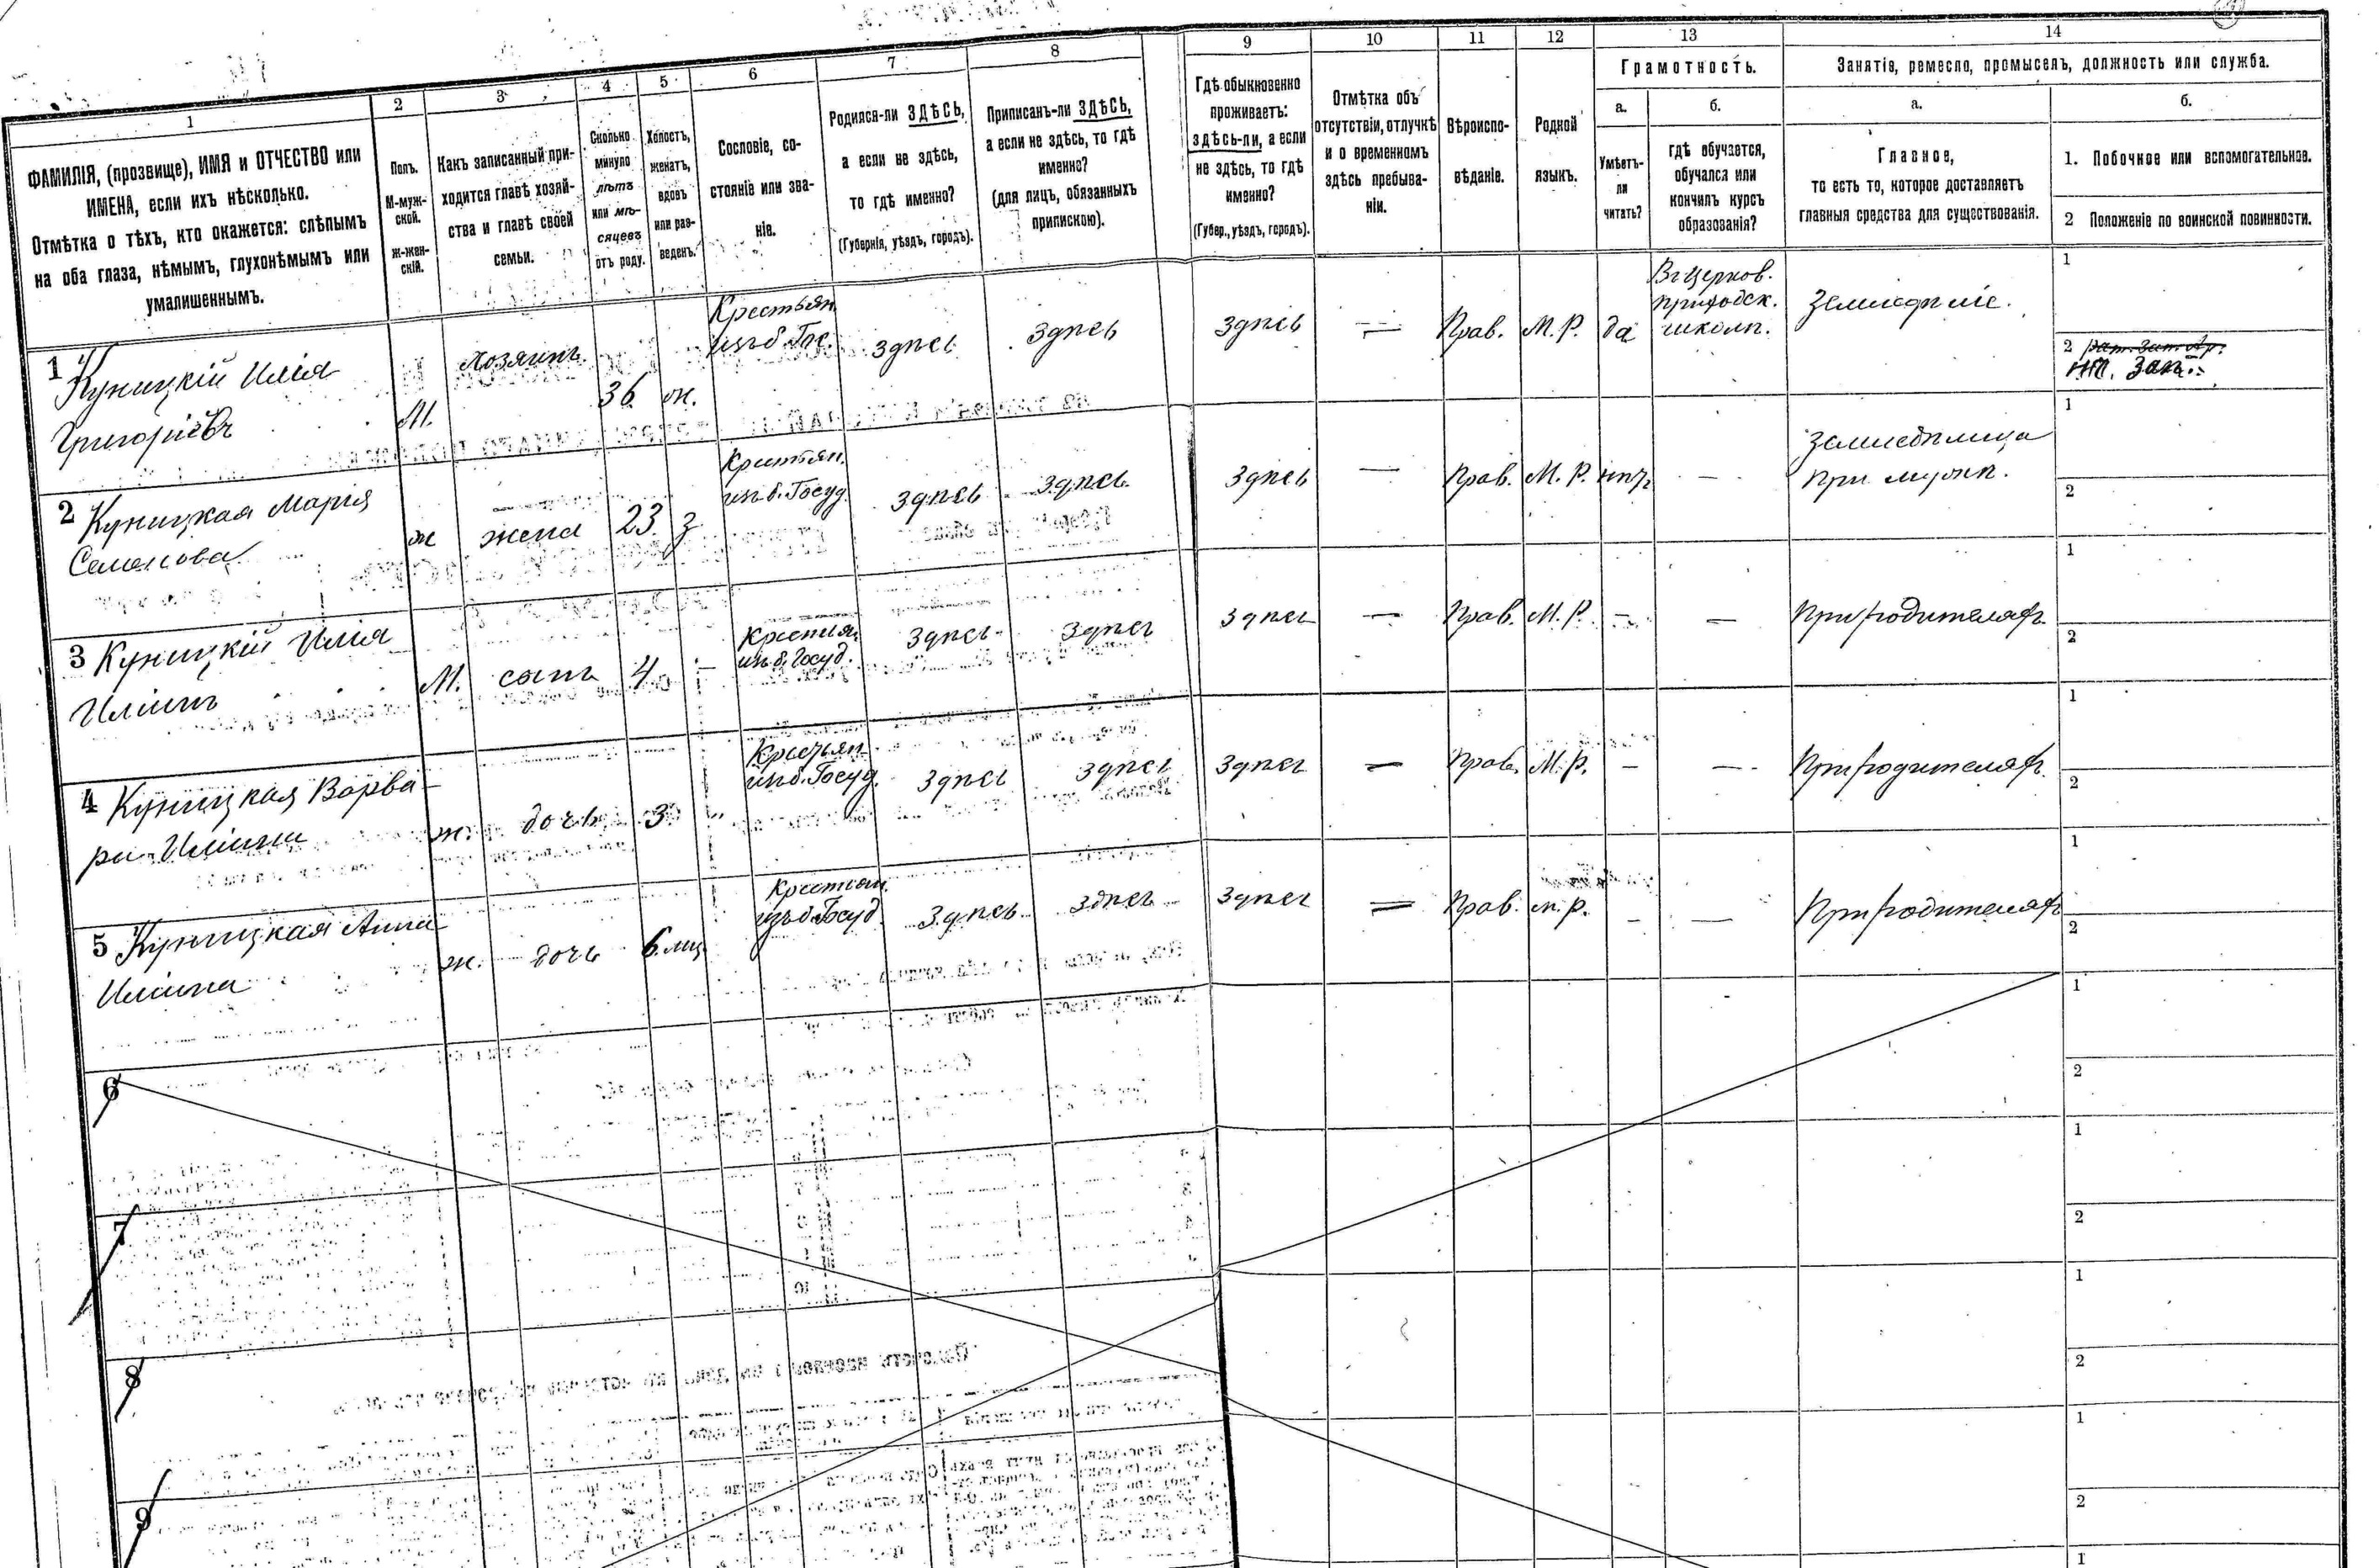 1
2
3
4
5
6
7
8
9
10
11
12
13
14
ФАМИЛІЯ, (прозвище), ИМЯ и ОТЧЕСТВО или
ИМЕНА, если ихъ нѣсколько.
Отмѣтка о тѣхъ, кто окажется: слѣпымъ
на оба глаза, нѣмымъ, глухонѣмымъ или
умалишеннымъ.
Полъ.
М-муж-
ской.
Ж-жен-
скій.
Какъ записанный при-
ходится главѣ хозяй-
ства и главѣ своей
семьи.
Сколько
минуло
лѣтъ
или мѣ-
сяцевъ
отъ роду.
Холостъ,
женатъ,
вдовъ
или раз-
веденъ.
Сословіе, со-
стояніе или зва-
ніе.
Родился-ли ЗДѢСЬ,
а если не здѣсь,
то гдѣ именно?
(Губернія, уѣздъ, городъ).
Приписанъ-ли ЗДѢСЬ,
а если не здѣсь, то гдѣ
именно?
(для лицъ, обязанныхъ
припискою).
Гдѣ обыкновенно
проживаетъ:
здѣсь-ли, а если
не здѣсь, то гдѣ
именно?
(Губер., уѣздъ, городъ).
Отмѣтка объ
отсутствіи, отлучкѣ
и о временномъ
здѣсь пребыва-
ніи.
Вѣроиспо-
вѣданіе.
Родной
языкъ.
Грамотность.
а.
Умѣетъ-
ли
читать?
б.
гдѣ обучается,
обучался или
кончилъ курсъ
образованія?
Занятіе, ремесло, промыселъ, должность или служба.
а.
Главное,
то есть то, которое доставляетъ
главныя средства для существованія.
б.
1. Побочное или вспомогательное.
2 Положеніе по воинской повинности.
1 Куницкій Илія
Григоріевъ
М.
хозяинъ
36
ж.
Крестьян.
изъ б. Гос.
здѣсь
здѣсь
здѣсь
—
Прав.
М. Р.
да
Въ церков.
приходск.
школѣ.
Земледѣліе.
1
2
2 Куницкая Марія
Семенова
ж
жена
23
з
Крестьян.
изъ б. Госуд.
здѣсь
здѣсь
здѣсь
—
Прав.
М. Р.
нѣтъ
—
Земледѣлица
При мужѣ.
1
2
3 Куницкій Илія
Иліинъ
М.
сынъ
4
—
Крестья.
изъ б. Госуд.
здѣсь
здѣсь
здѣсь
—
Прав.
М. Р.
—
—
При родителяхъ
1
2
4 Куницкая Варва-
ра Иліина
ж.
дочь
3
"
Крестьян
изъ б. Госуд.
здѣсь
здѣсь
здѣсь
—
Прав.
М. Р.
—
—
При родителяхъ
1
2
5 Куницкая Анна
Иліина
ж.
дочь
6 мц
Крестьян
изъ б. Госуд.
здѣсь
здѣсь
здѣсь
—
Прав.
м. р.
—
—
При родителяхъ
1
2
6
1
2
7
1
2
8
1
2
9
1
2
1